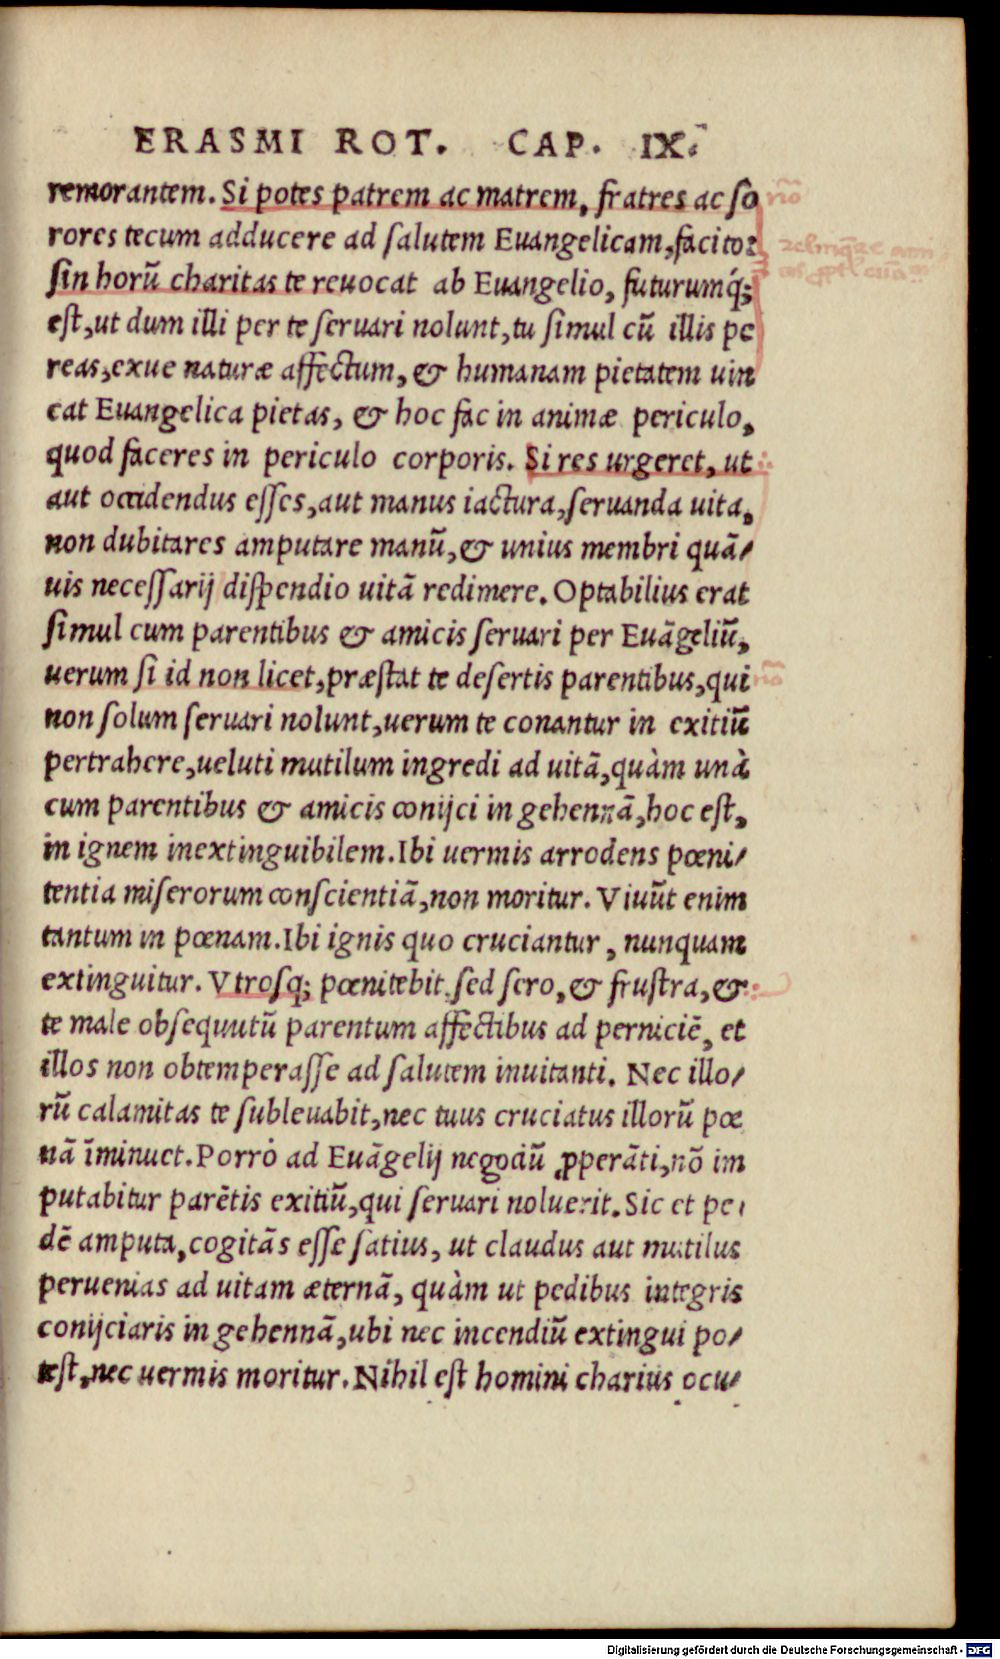 ERASMI ROT. CAP. IX.
remorantem. Si potes patrem ac matrem, fratres ac so
rores tecum adducere ad salutem Euangelicam, facito:
sin horū charitas te reuocat ab Euangelio, futurumq́;
est, ut dum illi per te seruari nolunt, tu simul cū illis pe
reas, exue naturæ affectum, & humanam pietatem uin
cat Euangelica pietas, & hoc fac in animæ periculo,
quod faceres in periculo corporis. Si res urgeret, ut
aut occidendus esses, aut manus iactura, seruanda uita,
non dubitares amputare manū, & unius membri quā/
uis necessarij dispendio uitā redimere. Optabilius erat
simul cum parentibus & amicis seruari per Euāgeliū,
uerum si id non licet, præstat te desertis parentibus, qui
non solum seruari nolunt, uerum te conantur in exitiū
pertrahere, ueluti mutilum ingredi ad uitā, quàm unà
cum parentibus & amicis conijci in gehennā, hoc est,
in ignem inextinguibilem. Ibi uermis arrodens pœni/
tentia miserorum conscientiā, non moritur. Viuūt enim
tantum in pœnam. Ibi ignis quo cruciantur, nunquam
extinguitur. Vtrosq; pœnitebit, sed sero, & frustra, &
te male obsequutū parentum affectibus ad perniciē, et
illos non obtemperasse ad salutem inuitanti. Nec illo/
rū calamitas te subleuabit, nec tuus cruciatus illorū pœ
nā īminuet. Porrò ad Euāgelij negociū ꝓperāti, nō im
putabitur parētis exitiū, qui seruari noluerit. Sic et pe/
dē amputa, cogitās esse satius, ut claudus aut mutilus
peruenias ad uitam æternā, quàm ut pedibus integris
conijciaris in gehennā, ubi nec incendiū extingui po/
test, nec uermis moritur. Nihil est homini charius ocu/
Digitalisierung gefördert durch die Deutsche Forschungsgemeinschaft - DFG